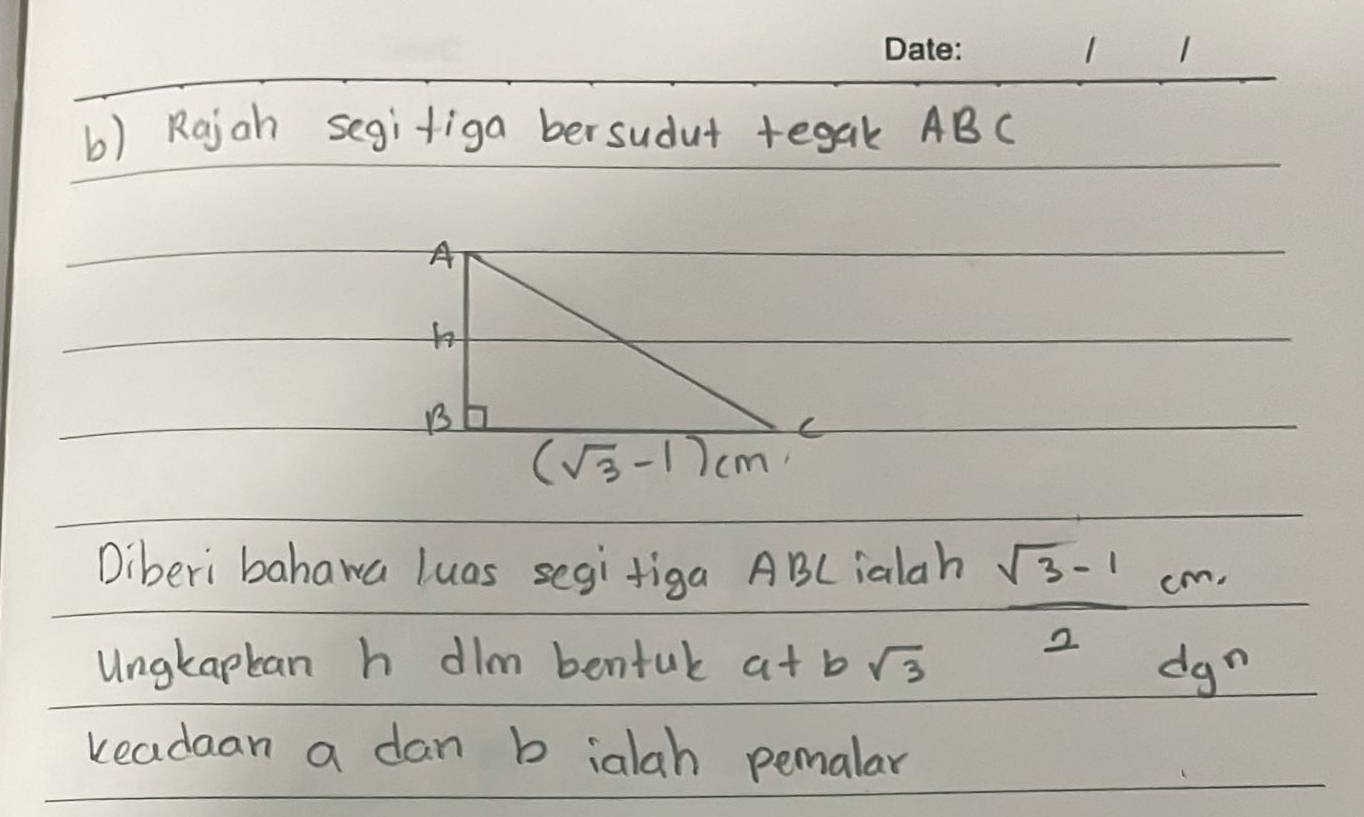 Date: / /
b) Rajah segi tiga bersudut tegak ABC
A
h
B
C
(√3-1)cm.
Diberi bahawa luas segi tiga ABC ialah √3-1/2 cm.
Ungkapkan h dlm bentuk a+b√3 dgn
keadaan a dan b ialah pemalar